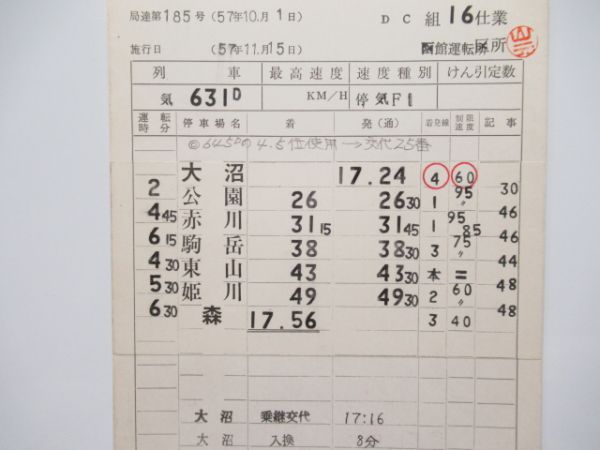 局達第185号(57年10月1日) DC 組 16 仕業
施行日 (57年11月15日) 函館運転所 区所
列 車 最高速度 速度種別 けん引定数
気 631D KM/H 停気F1
運転時分 停車場名 着 発(通) 着発線 制限速度 記事
◎645Dの4.5位使用→交代25番
大沼 17.24 4 60
2 公園 26 26 30 1 95 〃 30
4 45 赤川 31 15 31 45 1 95 85 46
6 15 駒岳 38 38 30 3 75 〃 46
4 30 東山 43 43 30 本 = 44
5 30 姫川 49 49 30 2 60 〃 48
6 30 森 17.56 3 40 48
大沼 乗継交代 17:16
大沼 入換 8分